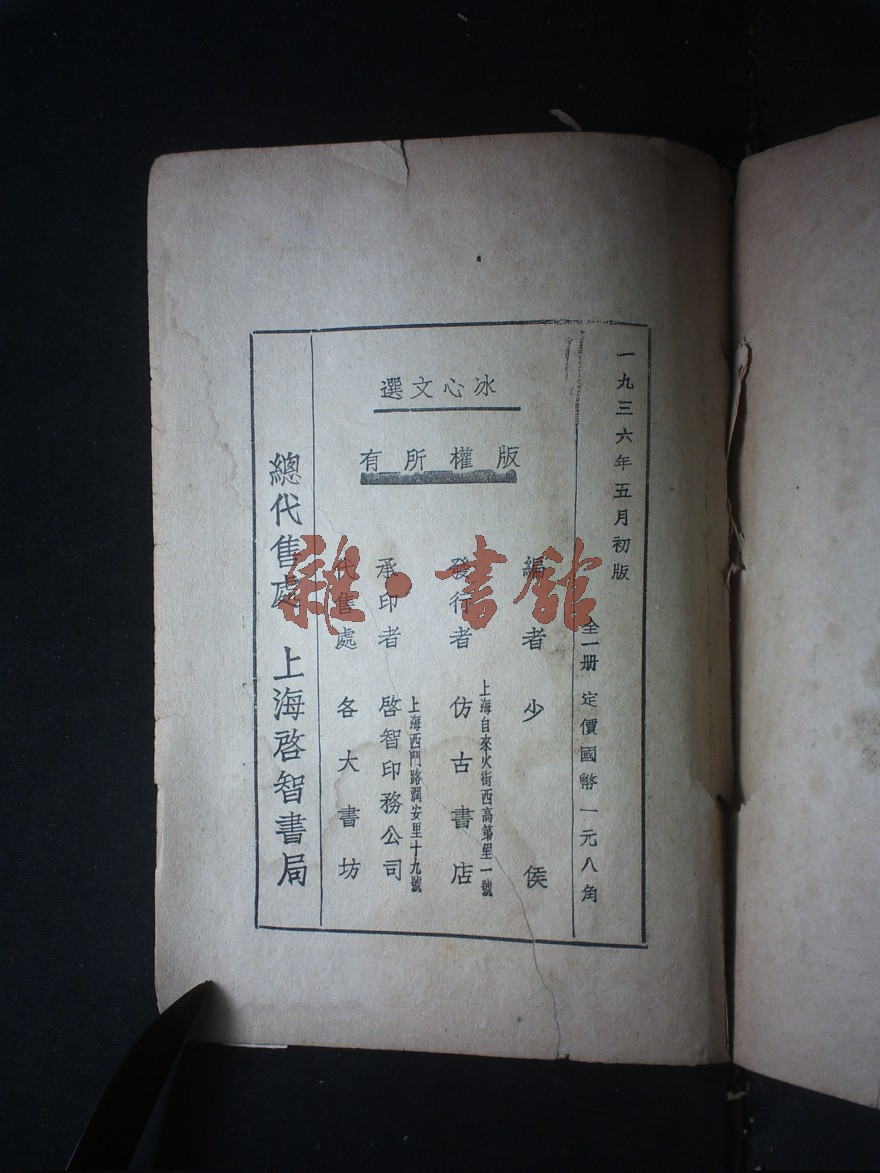 一九三六年五月初版
全一册 定價國幣一元八角
冰心文選
版權所有
編者 少侯
上海自來火街西高第里一號
發行者 仿古書店
上海西門路潤安里十九號
承印者 啓智印務公司
代售處 各大書坊
總代售處 上海啓智書局
雜·書館